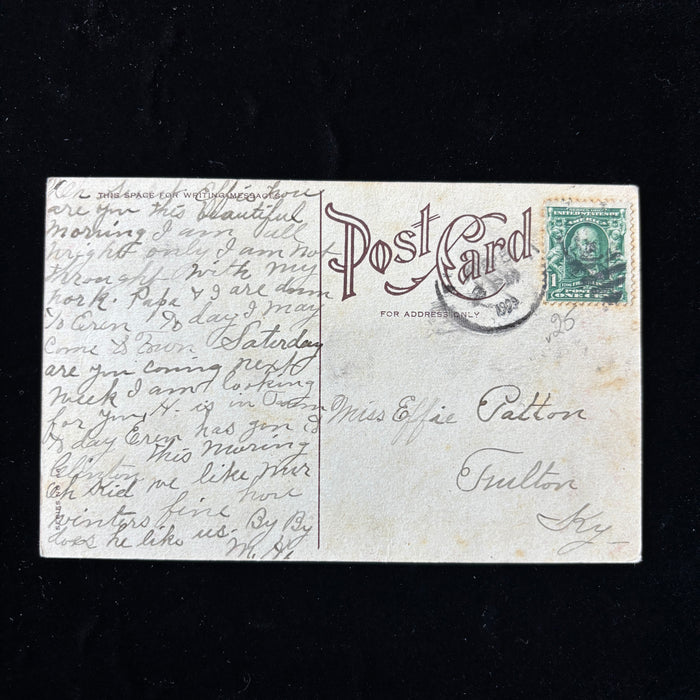 THIS SPACE FOR WRITING MESSAGES
Effie how
are you this beautiful
morning I am all
wright only I am not
throught with my
work. Papa & I are down
To Eren To day I may
Come to Town Saturday
are you coming next
week I am looking
for you, H. is in
To day Eren has gon to
Clinton this morning
Oh kid we like Mr
winters fine how
does he like us. By By
M. H.
Post Card
FOR ADDRESS ONLY
1909
UNITED STATES OF
AMERICA
1
ONE CENT
25
Miss Effie Patton
Fulton
Ky